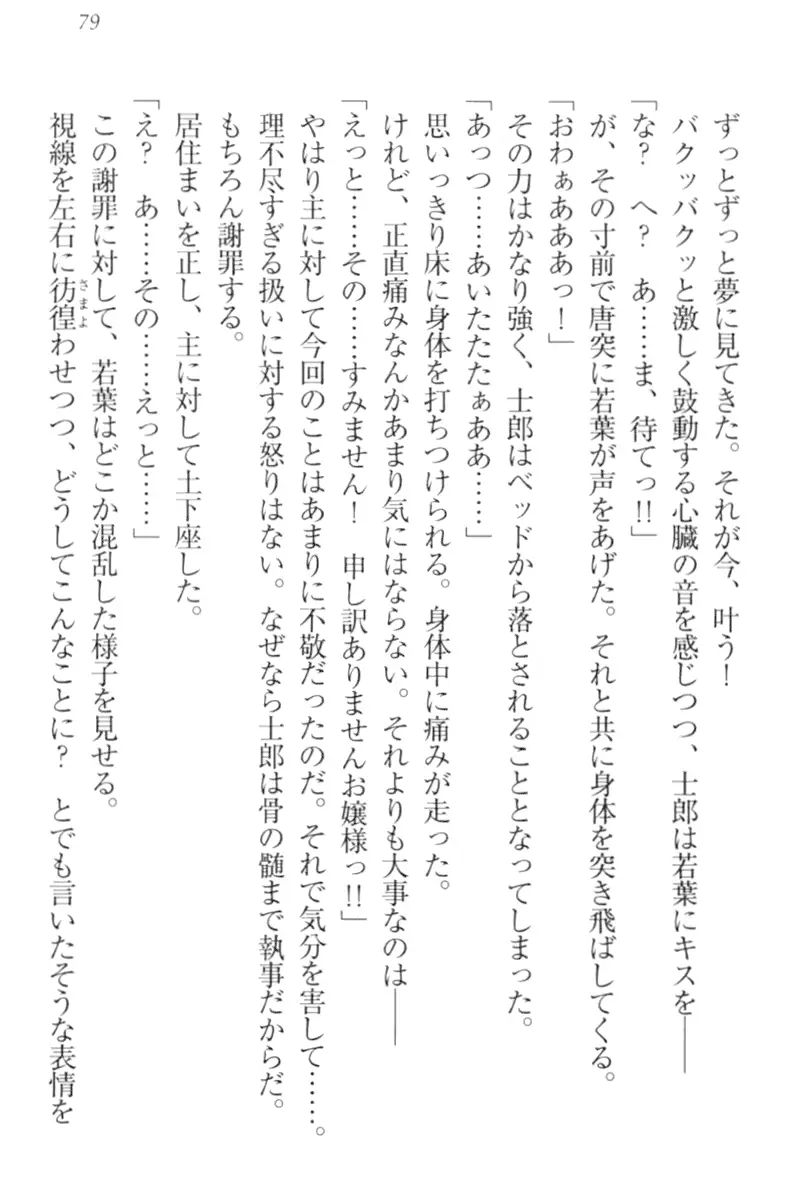 79
ずっとずっと夢に見てきた。それが今、叶う！
バクッバクッと激しく鼓動する心臓の音を感じつつ、士郎は若葉にキスを――
「な？　へ？　あ……ま、待てっ!!」
が、その寸前で唐突に若葉が声をあげた。それと共に身体を突き飛ばしてくる。
「おわぁあああっ！」
その力はかなり強く、士郎はベッドから落とされることとなってしまった。
「あっつ……あいたたたぁああ……」
思いっきり床に身体を打ちつけられる。身体中に痛みが走った。
けれど、正直痛みなんかあまり気にはならない。それよりも大事なのは――
「えっと……その……すみません！　申し訳ありませんお嬢様っ!!」
やはり主に対して今回のことはあまりに不敬だったのだ。それで気分を害して……。
理不尽すぎる扱いに対する怒りはない。なぜなら士郎は骨の髄まで執事だからだ。
もちろん謝罪する。
居住まいを正し、主に対して土下座した。
「え？　あ……その……えっと……」
この謝罪に対して、若葉はどこか混乱した様子を見せる。
視線を左右に彷徨わせつつ、どうしてこんなことに？　とでも言いたそうな表情を
さまよ